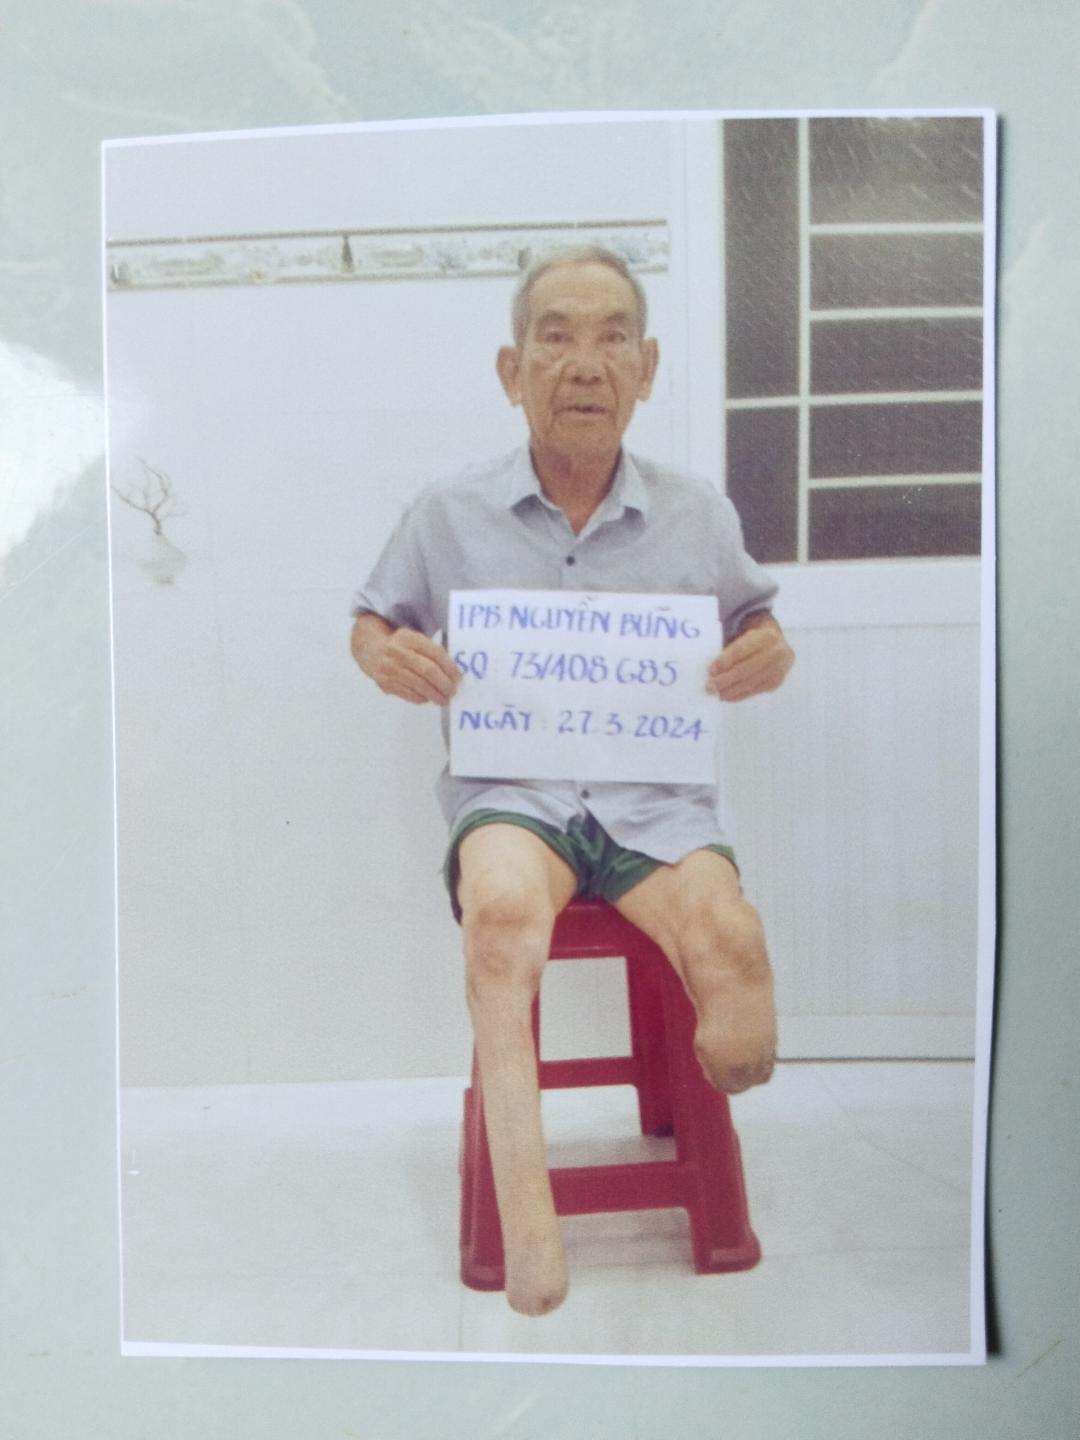 TPB NGUYỄN BỮNG
SQ: 73/408685
NGÀY: 27.3.2024